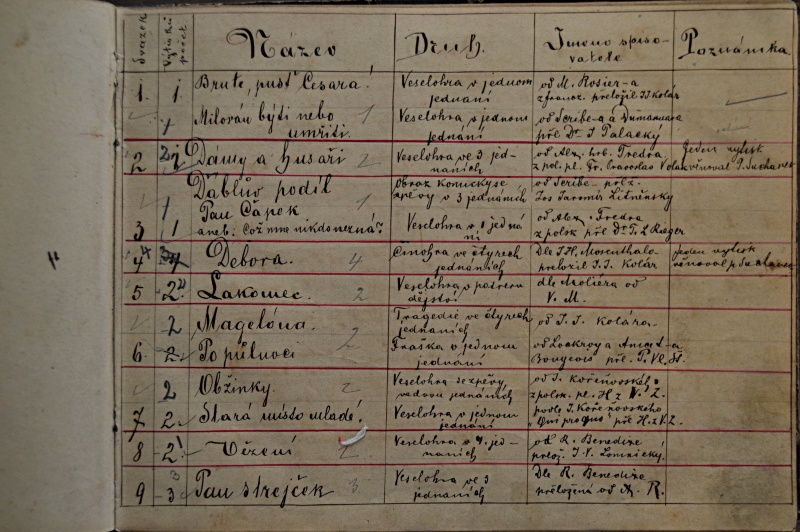 Svazek Výtisků počet Název Druh. Jméno spiso-
vatele Poznámka
1. 1. Brute, pusť Cesara! Veselohra v jednom
jednaní od M. Rosier-a
z franc. přeložil J.J. Kolár
1 Milován býti nebo
umříti. 1 Veselohra v jednom
jednání od Scribe-a a Dumanoara
přel. Dr. J. Palacký
2 2 Dámy a husaři 2 Veselohra ve 3 jed-
naních od Alx. hrb. Fredra,
z pol. pl. Fr. Vrawoslav Jeden výtisk
věnoval P. Suchánek
1 Ďáblův podíl 1 Obraz komický se
zpěvy v 3 jednáních od Scribe přlz.
Jos Jaromír Litněnský
3 1 Pan Čapok
aneb: Což mne nikdo nezná? Veselohra v 1 jedná
ní od Alex. Fredra
z polsk. pře Dr. F. L. Rieger
4 4 Debora. 4 Činohra ve čtyrech
jednáních Dle J.H. Mosenthala
preložil J.J. Kolár Jeden výtisk
věnoval p. Suchánek
5 2 Lakomec. 2 Veselohra v patero
dějství dle Moliéra od
V. M.
2 Magelóna. 2 Tragedie ve čtyrech
jednaních od J. J. Kolára.
6. 2. Po půlnoci Fraška v jednom
jednání od Lockroy a Anicet-a
Bourgeois pře. P. Vl. H.
2 Obžinky. 2 Veselohra se zpěvy
ve dvou jednáních od J. Kořeňovského
z polsk. pl. H. z V. Z.
7 2. Stará místo mladé! Veselohra v jednom
jednani podlé J. Kořeňovského
"Qui pro quo" pře H. z V. Z.
8 2 Vězení 2 Veselohra v 4. jed-
naních od R. Benedixe
přelož. J. V. Lomnický.
9 3 Pan strejček 3 Veselohra ve 3
jednaních Dle R. Benedixe
přeložená od A. R.